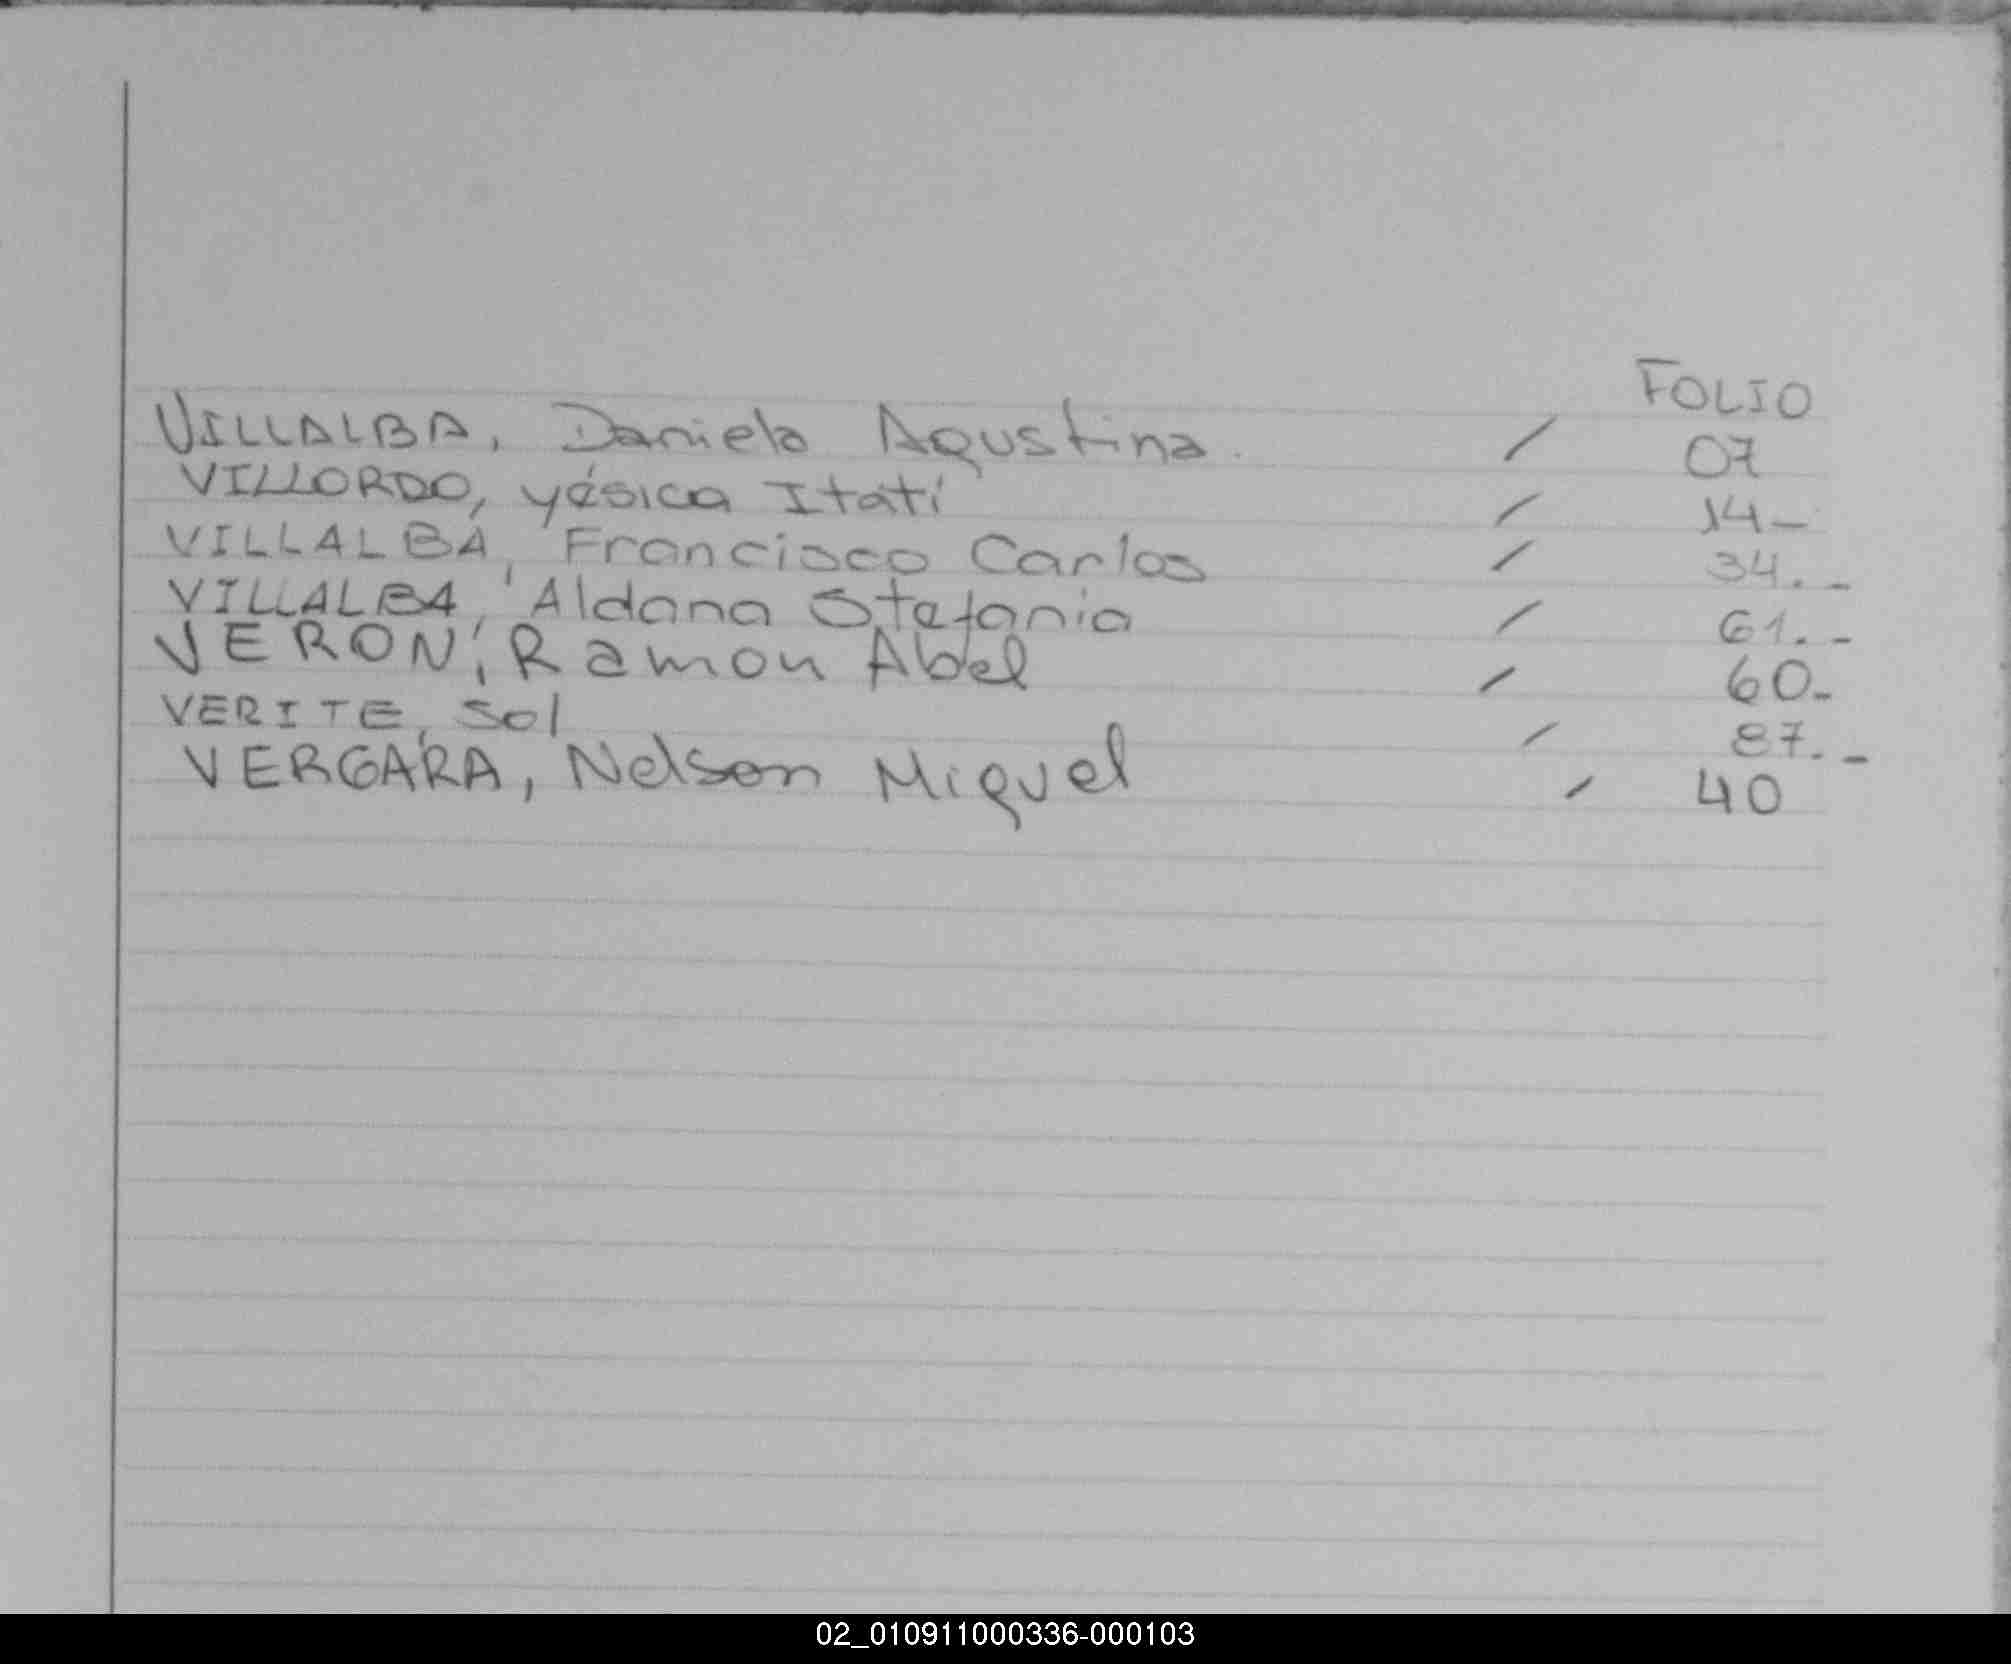 FOLIO
VILLALBA, Daniela Agustina. / 07
VILLORDO, yésica Itatí / 14-
VILLALBA, Francisco Carlos / 34.-
VILLALBA, Aldana Stefania / 61.-
VERON, Ramon Abel / 60-
VERITE, Sol / 87.-
VERGARA, Nelson Miguel / 40
02_010911000336-000103